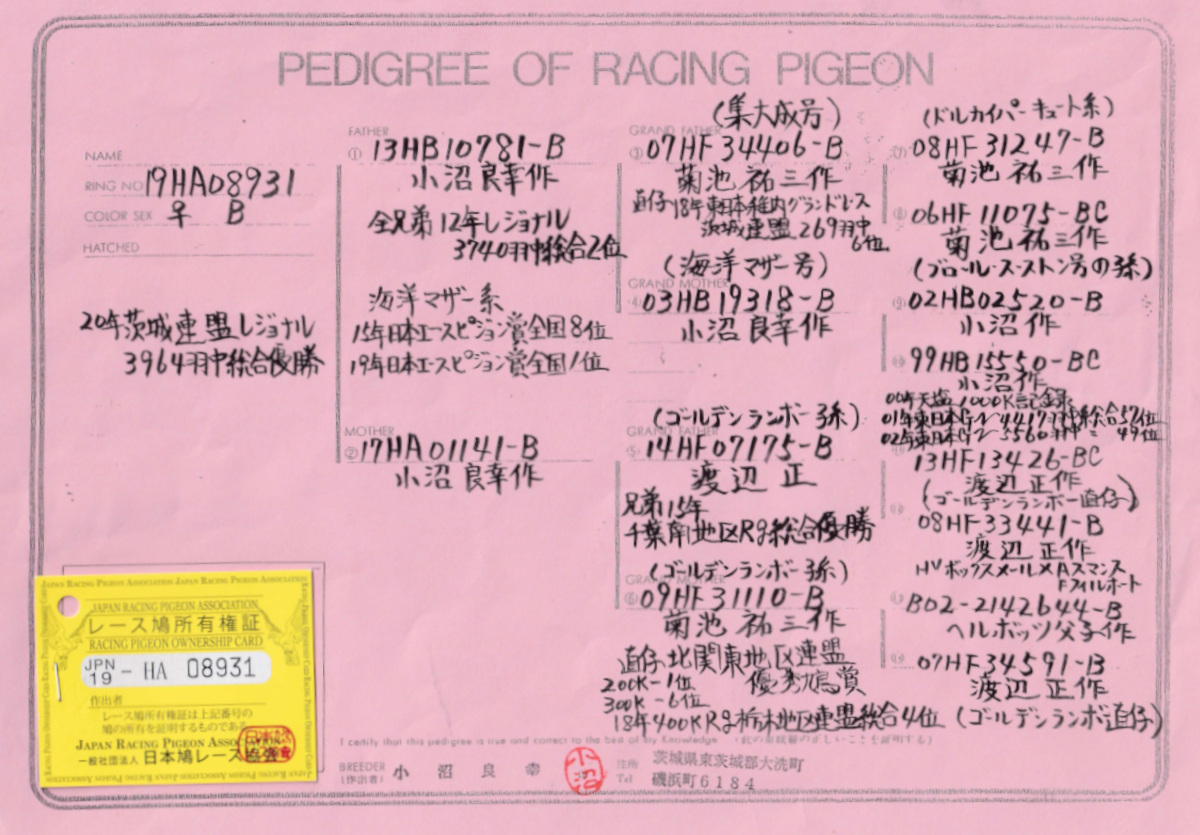 PEDIGREE OF RACING PIGEON
NAME
RING NO 19HA08931
COLOR SEX ♀ B
HATCHED
20年茨城連盟レジョナル
3964羽中総合優勝
FATHER
① 13HB10781-B
小沼良幸作
全兄弟12年レジョナル
3740羽中総合2位
海洋マザー系
15年日本エースピジョン賞全国8位
19年日本エースピジョン賞全国1位
MOTHER
② 17HA01141-B
小沼良幸作
(集大成号)
GRAND FATHER
③ 07HF34406-B
菊池祐三作
直仔18年東日本稚内グランドレース
茨城連盟269羽中
6位
(海洋マザー号)
GRAND MOTHER
④ 03HB19318-B
小沼良幸作
(ゴールデンランボー孫)
GRAND FATHER
⑤ 14HF07175-B
渡辺正
兄弟15年
千葉南地区Rg総合優勝
(ゴールデンランボー孫)
GRAND MOTHER
⑥ 09HF31110-B
菊池祐三作
直仔北関東地区連盟
200K-1位 優秀鳩賞
300K-6位
18年400KRg栃木地区連盟総合4位
(ドルカイパーキュート系)
08HF31247-B
菊池祐三作
06HF11075-BC
菊池祐三作
02HB02520-B
小沼作
99HB15550-BC
小沼作
00年天塩1000K記録
01年東日本GN4417羽中総合57位
13HF13426-BC
渡辺正作
(ゴールデンランボー直仔)
08HF33441-B
渡辺正作
HVボックスメール×Aスマンス
Fフィルボート
B02-2142644-B
ヘルボッツ父子作
07HF34591-B
渡辺正作
(ゴールデンランボ直仔)
I certify that this pedigree is true and correct to the best of my Knowledge
BREEDER
(作出者) 小沼良幸
小沼
住所 茨城県東茨城郡大洗町
Tel 磯浜町6184
JAPAN RACING PIGEON ASSOCIATION JAPAN RACING PIGEON ASSOCIATION
JAPAN RACING PIGEON ASSOCIATION
レース鳩所有権証
RACING PIGEON OWNERSHIP CARD
JPN 19 - HA 08931
作出者
レース鳩所有権証は上記番号の
鳩の所有を証明するものである
JAPAN RACING PIGEON ASSOCIATION
一般社団法人 日本鳩レース協会